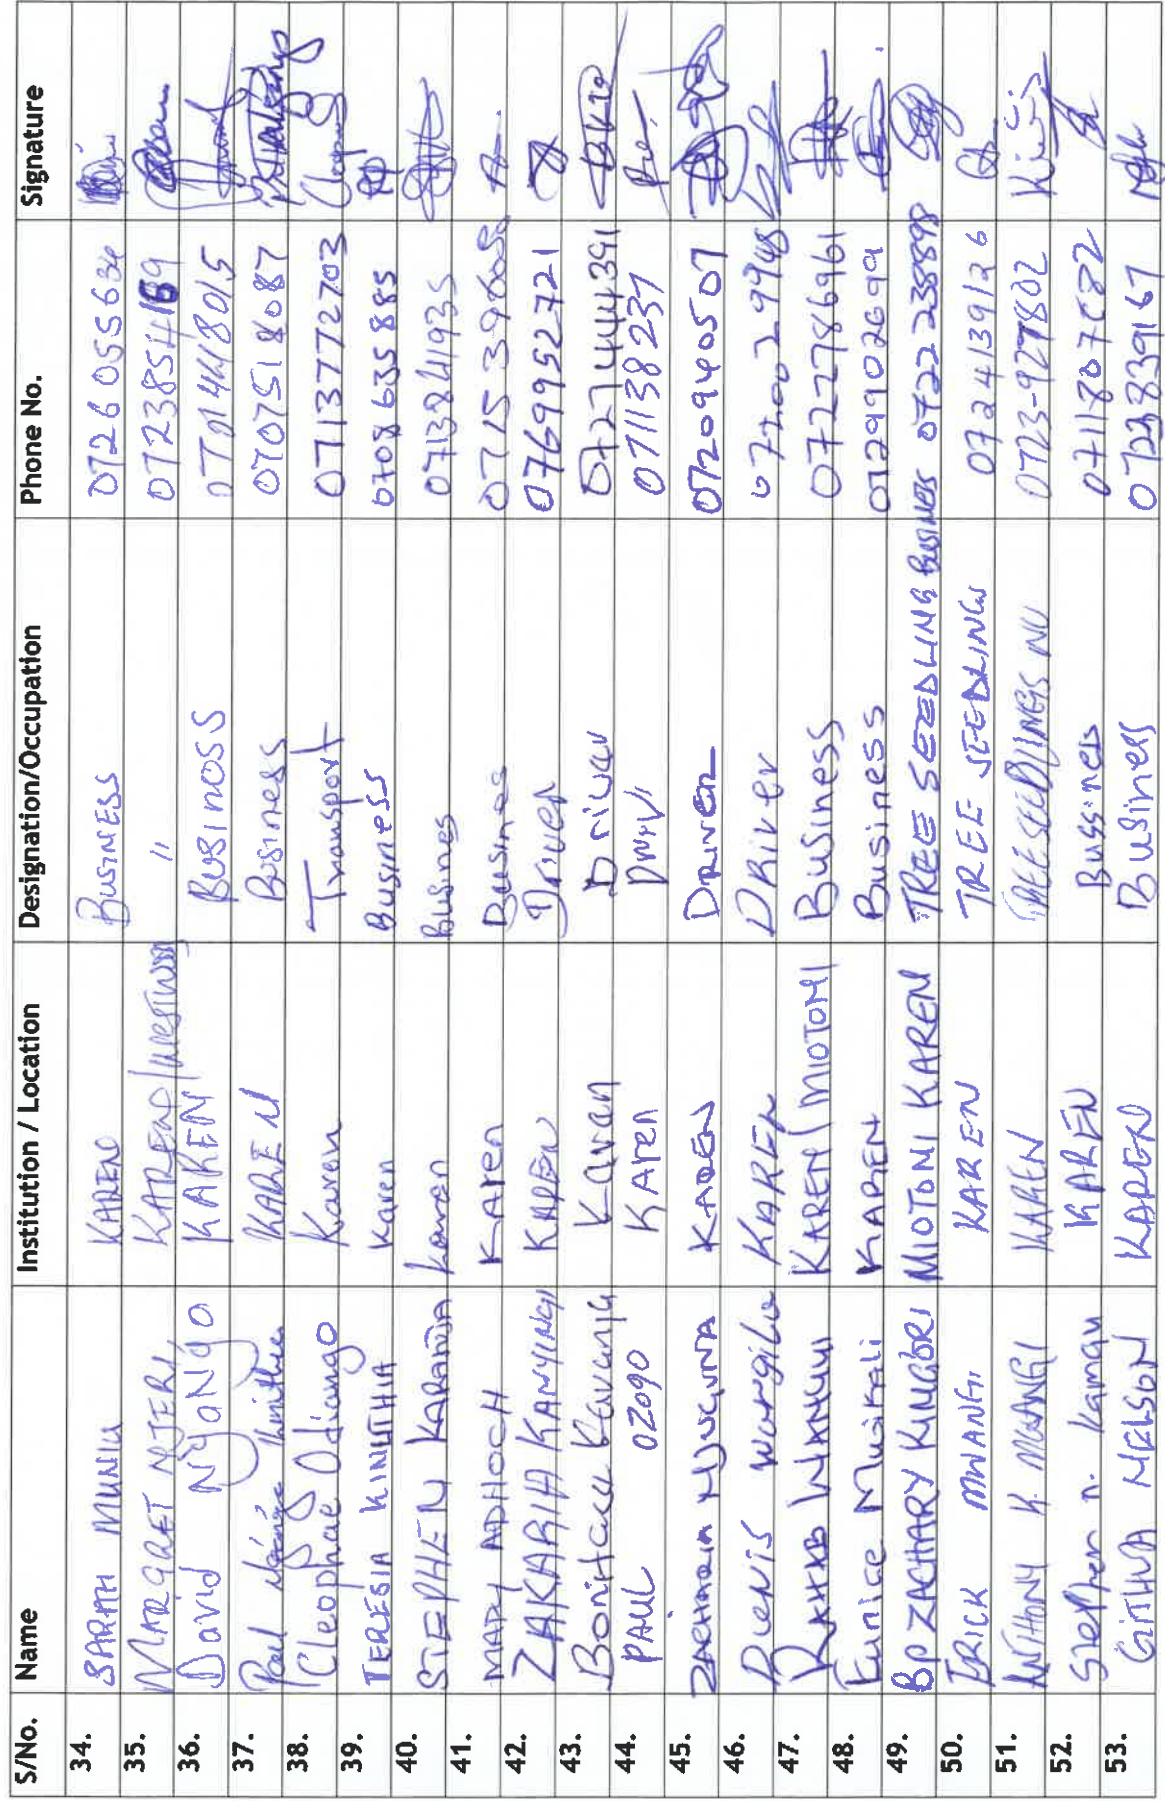 S/No. Name Institution / Location Designation/Occupation Phone No. Signature
34. SARAH MUNIU KAREN Business 0726055634
35. MARGARET NJERI KAREN/ " 0723854169
36. David Nyango KAREN Businoss 0701448015
37. Paul KAREN Business 0707518087
38. Cleophae Odiango Karen Transport 0713772703
39. TERESIA KINUTHIA Karen Business 0708635885
40. STEPHEN KARANJA Karen Busines 0713841935
41. MARY ADHOCH Karen Busines
42. ZAKARIA KANYINGI KAREN Driver 0769952721
43. Boniface Kavanja Kavan Driver 0727444391
44. PAUL OZOGO KAREN 071138237
45. ZACHARIA NJUGUNA KAREN DRIVER 0720940507
46. DENIS Wangila KAREN DRiver
47. KAREN/MIOTONI Business 0722786961
48. Eunice Musikali KAREN Business 0729902699
49. BP ZACHARY KINGORI MIOTONI KAREN TREE SEEDLING Business 0722238898
50. ERICK MWANGI KAREN TREE SEEDLINGS 0724139126
51. ANTHONY K. MWANGI KAREN TREE SEEDLINGS NU 0723-927802
52. Stephen n. Kamau KAREN Bussines 0711807682
53. GITHUA NELSON KAREN Business 0722839167